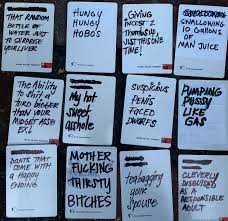 THAT RANDOM
BOTTLE OF
WATER JUST
TO SURPRISE
YOUR LOVER
HUNGY
HUNGY
HOBO'S
GIVING
INCEST 2
THUMBS UP,
JUST THIS ONE
TIME!
SWALLOWING
10 GALLONS
OF
MAN JUICE
The Ability
to shit a
turd bigger
than your
MIDGET ASS
EX!
My hot
sweet
asshole
SUSPICIOUS
PENIS
FACED
DWARFS
PUMPING
PUSSY
LIKE
GAS
PANTS THAT
COME WITH
A HAPPY
ENDING
MOTHER
FUCKING
THIRSTY
BITCHES
Teabagging
your
Spouse
CLEVERLY
DISGUISED
AS A
RESPONSIBLE
ADULT